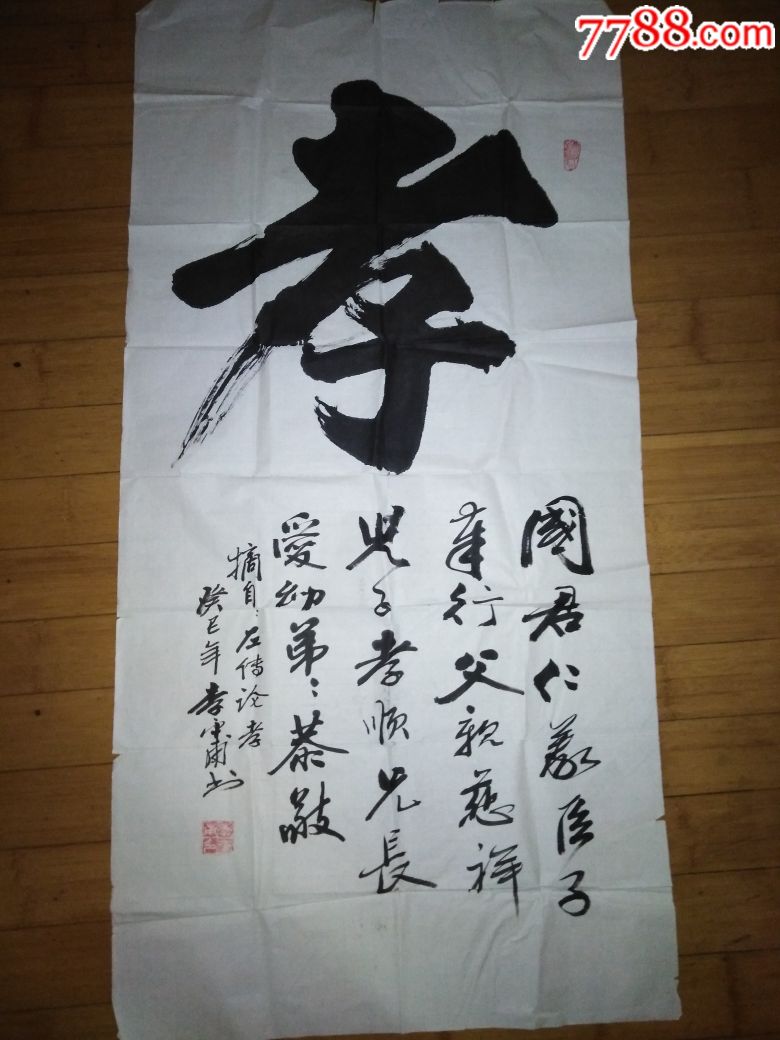 7788.com
孝
國君仁義臣子
奉行父親慈祥
児子孝順兄長
愛幼弟弟恭敬
摘自左傳論孝
癸巳年